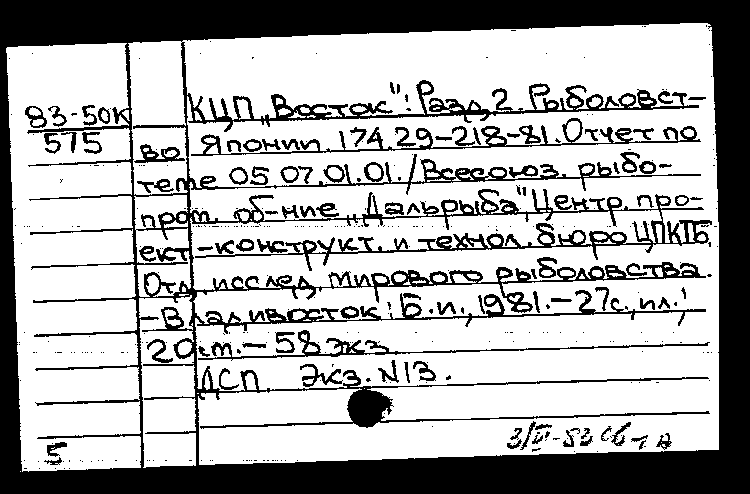 83-50К
575
КЦП „Восток": Разд. 2. Рыболовст-
во Японии. 174.29-218-81. Отчет по
теме 05.07.01.01. / Всесоюз. рыбо-
пром. об-ние „Дальрыба", Центр. про-
ект-конструкт. и технол. бюро ЦПКТБ,
Отд. исслед. мирового рыболовства.
-Владивосток: Б.и., 1981.-27с., ил.;
20 см. - 58 экз.
ДСП. Экз. N13.
5